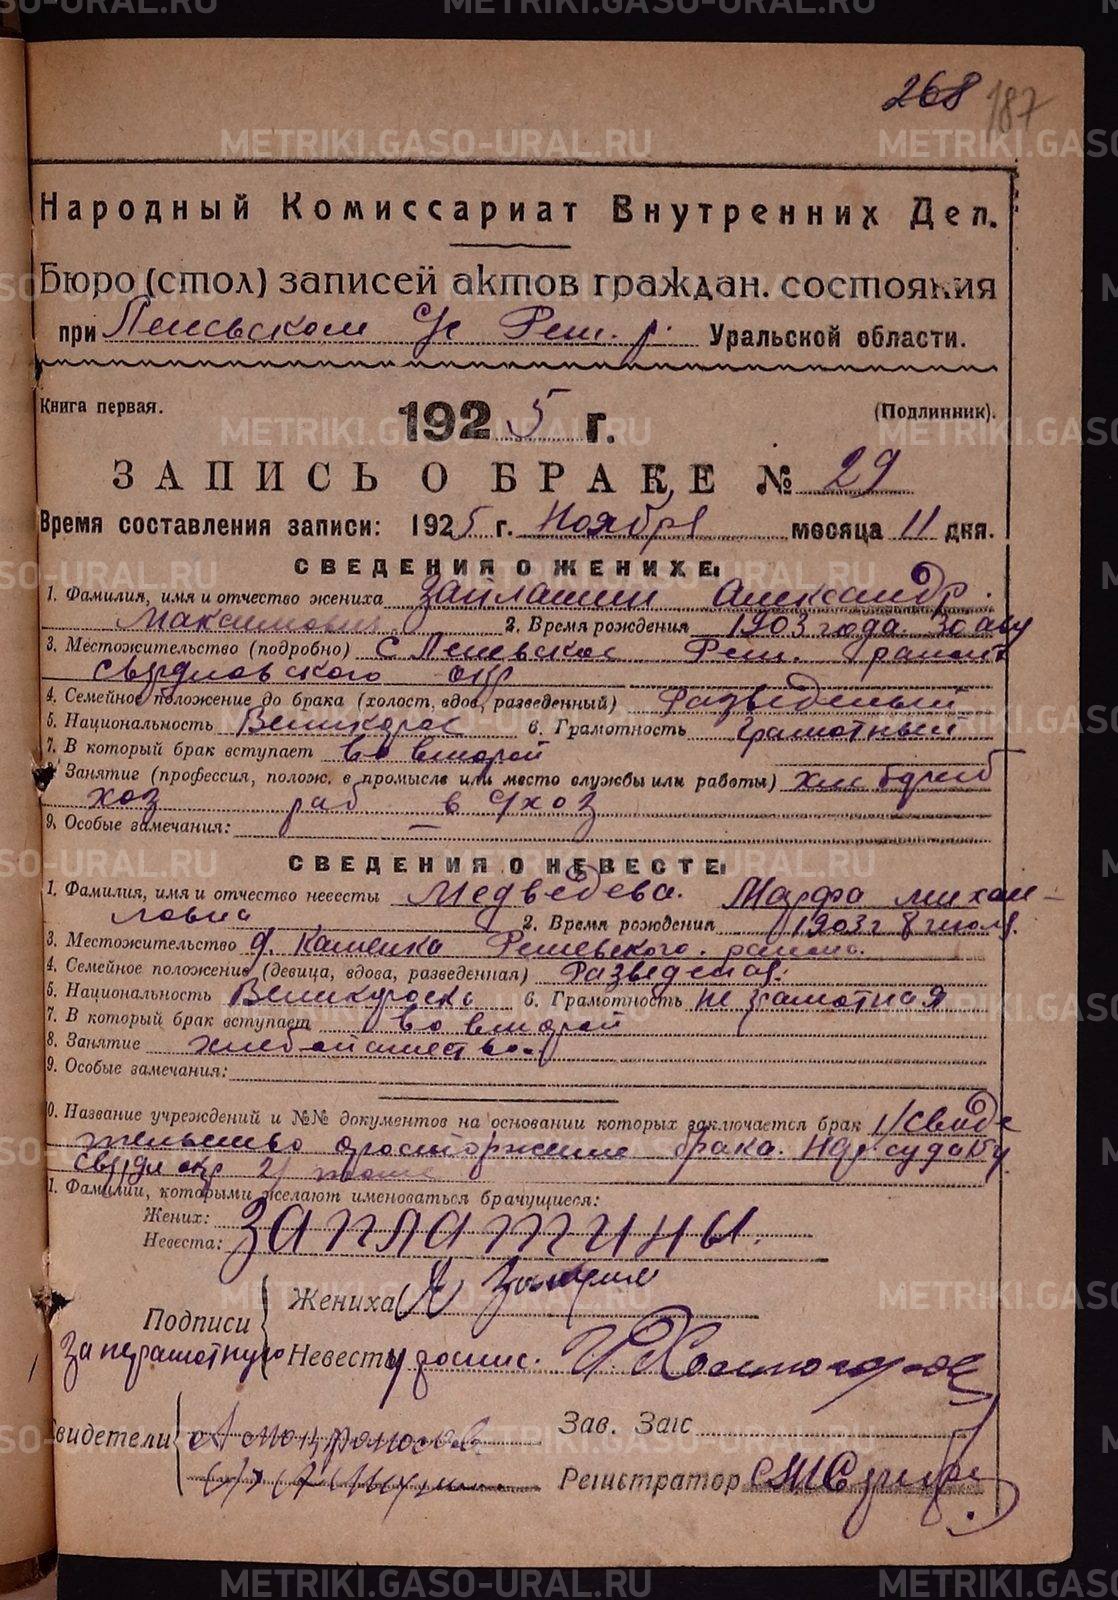 268 187
Народный Комиссариат Внутренних Дел.
Бюро (стол) записей актов граждан. состояния
при Леневском с/с Реж. р. Уральской области.
Книга первая. 1925 г. (Подлинник).
ЗАПИСЬ О БРАКЕ № 29
Время составления записи: 1925 г. Ноября месяца 11 дня.
СВЕДЕНИЯ О ЖЕНИХЕ:
1. Фамилия, имя и отчество жениха Заплатин Александр
Максимович 2. Время рождения 1903 года 30 авг
3. Местожительство (подробно) С Леневское Реж. района
свердловского окр
4. Семейное положение до брака (холост, вдов, разведенный) Разведеный
5. Национальность Великорос 6. Грамотность грамотный
7. В который брак вступает во второй
8. Занятие (профессия, полож. в промысле или место службы или работы)
хоз раб в с/хоз
9. Особые замечания: —
СВЕДЕНИЯ О НЕВЕСТЕ:
1. Фамилия, имя и отчество невесты Медведева. Марфа михаи-
ловна 2. Время рождения 1903 г 8 июля
3. Местожительство д. Каменка Режевского. района.
4. Семейное положение (девица, вдова, разведенная) Разведеная.
5. Национальность Великоросска 6. Грамотность не грамотная
7. В который брак вступает во второй
8. Занятие хлебопашество.
9. Особые замечания:
10. Название учреждений и №№ документов на основании которых заключается брак 1/ Свиде
тельство о расторжение брака. Нар. суда
свердл окр 2/ тоже
11. Фамилии, которыми желают именоваться брачущиеся:
Жених:
Невеста: Заплатины.
Подписи Жениха А Заплатин
За неграмотную Невесты роспис.
Свидетели Зав. Загс
Регистратор
METRIKI.GASO-URAL.RU